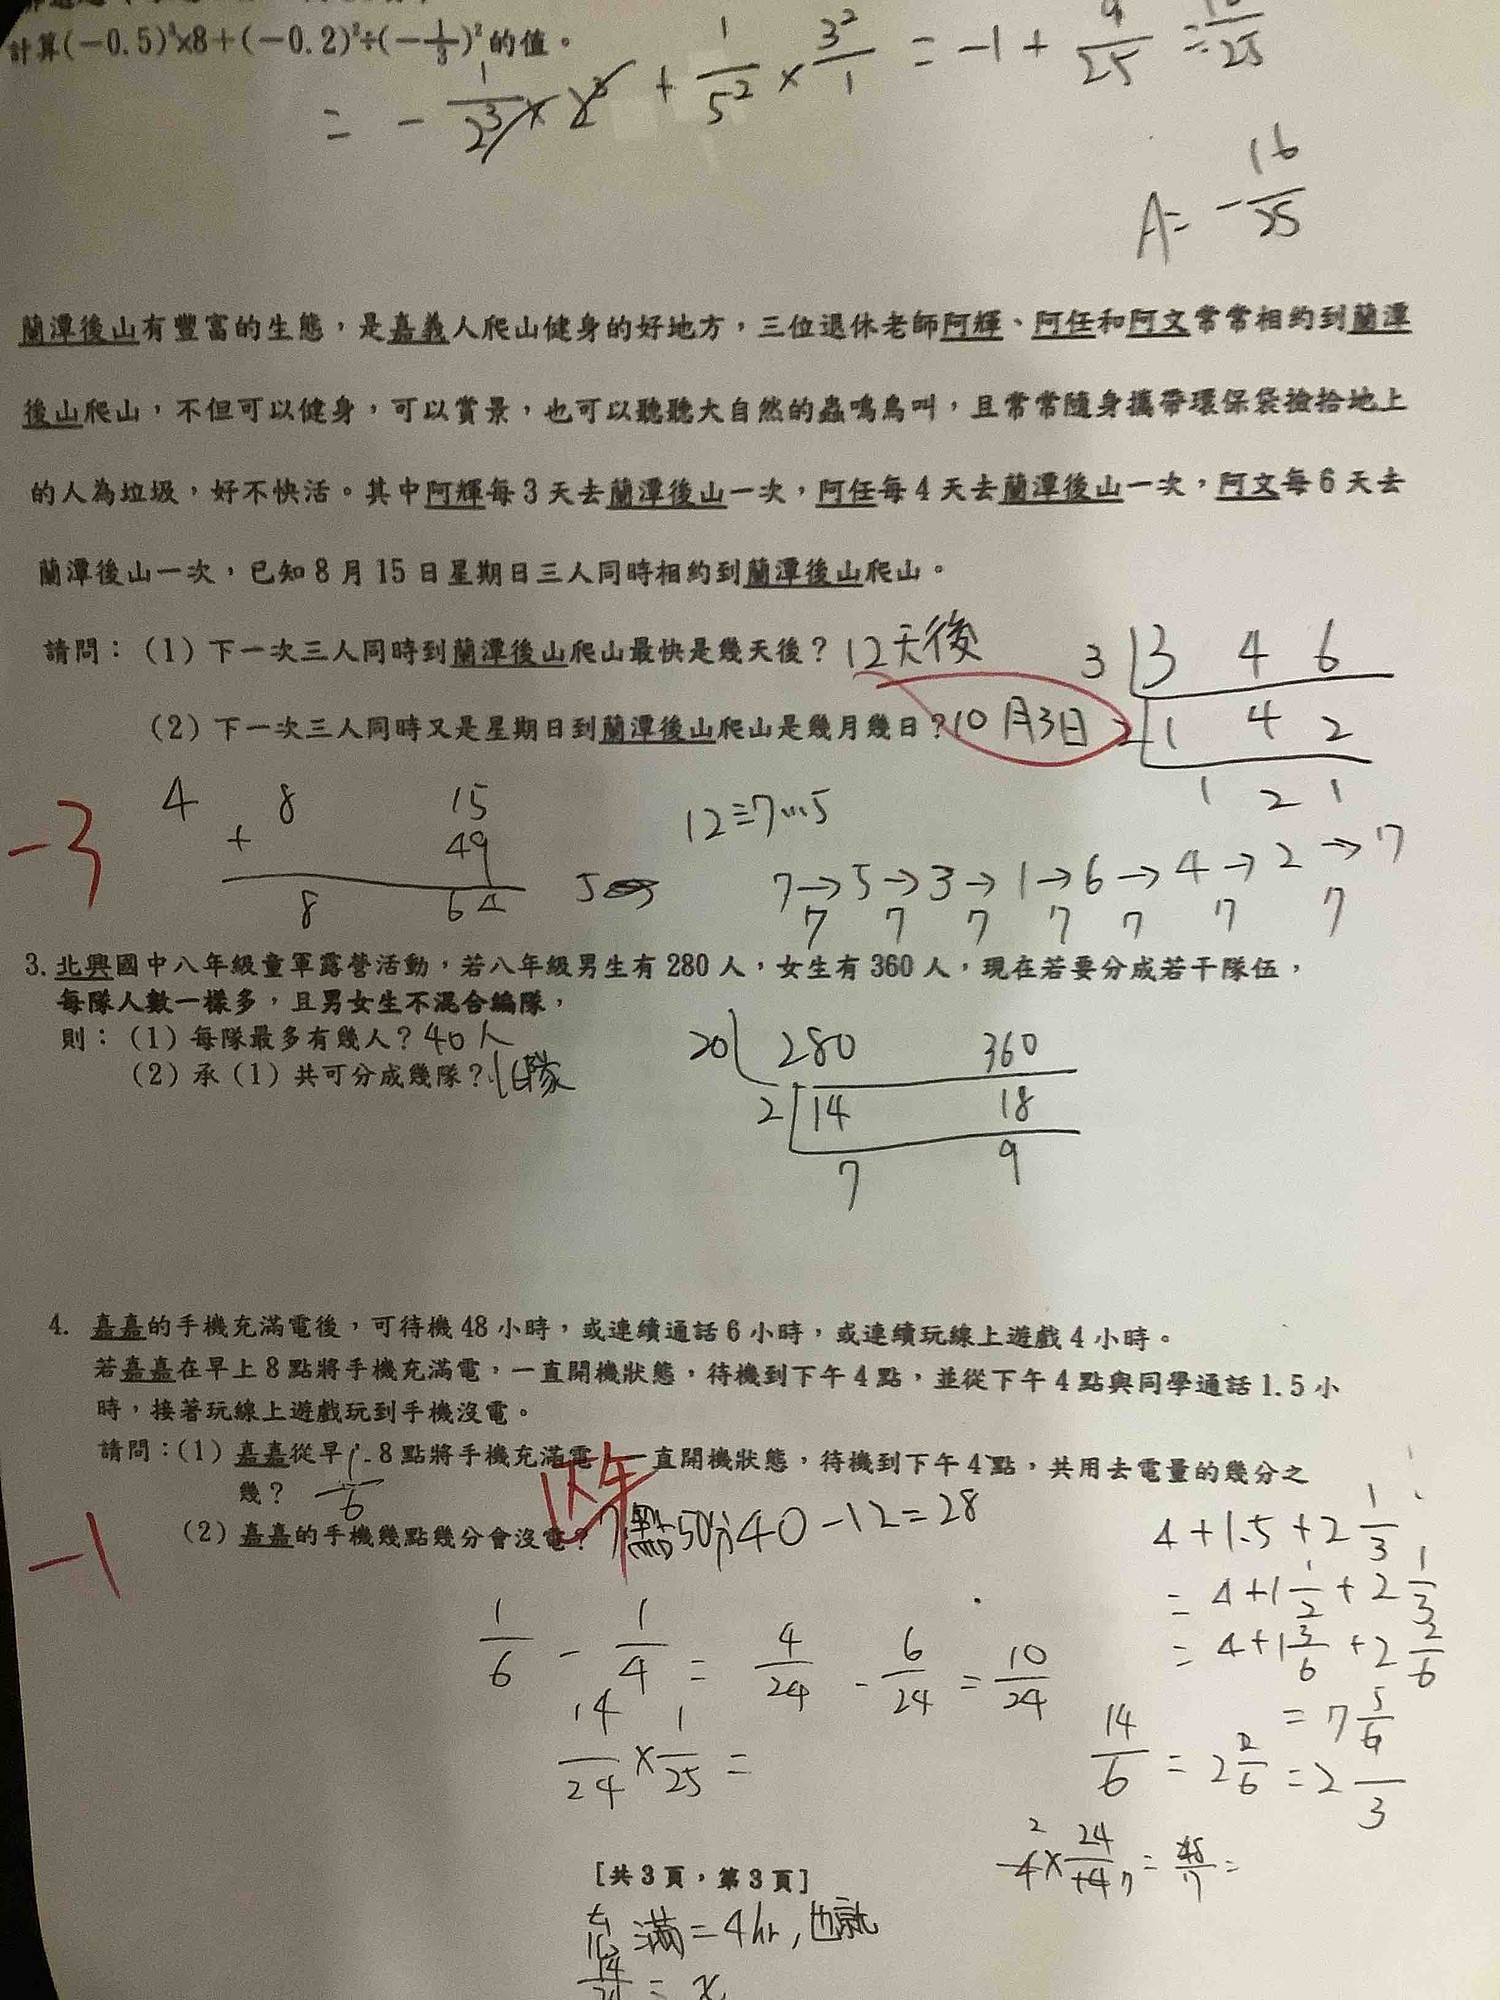 計算(-0.5)³×8+(-0.2)²÷(-1/3)²的值。
= - 1/2³ × 2³ + 1/5² × 3²/1 = -1 + 9/25 =
A= -16/25
蘭潭後山有豐富的生態，是嘉義人爬山健身的好地方，三位退休老師阿輝、阿任和阿文常常相約到蘭潭
後山爬山，不但可以健身，可以賞景，也可以聽聽大自然的蟲鳴鳥叫，且常常隨身攜帶環保袋撿拾地上
的人為垃圾，好不快活。其中阿輝每3天去蘭潭後山一次，阿任每4天去蘭潭後山一次，阿文每6天去
蘭潭後山一次，已知8月15日星期日三人同時相約到蘭潭後山爬山。
請問：(1)下一次三人同時到蘭潭後山爬山最快是幾天後？12天後
(2)下一次三人同時又是星期日到蘭潭後山爬山是幾月幾日？10月3日
3 3 4 6
2 1 4 2
1 2 1
-3
4 8 15
+ 49
8 64
12÷7…5
7→5→3→1→6→4→2→7
7 7 7 7 7 7 7
3. 北興國中八年級童軍露營活動，若八年級男生有280人，女生有360人，現在若要分成若干隊伍，
每隊人數一樣多，且男女生不混合編隊，
則：(1)每隊最多有幾人？40人
(2)承(1)共可分成幾隊？16隊
20 280 360
2 14 18
7 9
4. 嘉嘉的手機充滿電後，可待機48小時，或連續通話6小時，或連續玩線上遊戲4小時。
若嘉嘉在早上8點將手機充滿電，一直開機狀態，待機到下午4點，並從下午4點與同學通話1.5小
時，接著玩線上遊戲玩到手機沒電。
請問：(1)嘉嘉從早 8點將手機充滿電 一直開機狀態，待機到下午4點，共用去電量的幾分之
幾？ 1/6
(2)嘉嘉的手機幾點幾分會沒電？下午7點50分
40-12=28
-1
4+1.5+2 1/3
= 4+1 1/2+2 1/3
= 4+1 3/6+2 2/6
= 7 5/6
1/6 - 1/4 = 4/24 - 6/24 = 10/24
14/24 × 1/25 =
14/6 = 2 2/6 = 2 /3
[共3頁，第3頁]
滿=4hr，也就
14/24 = x